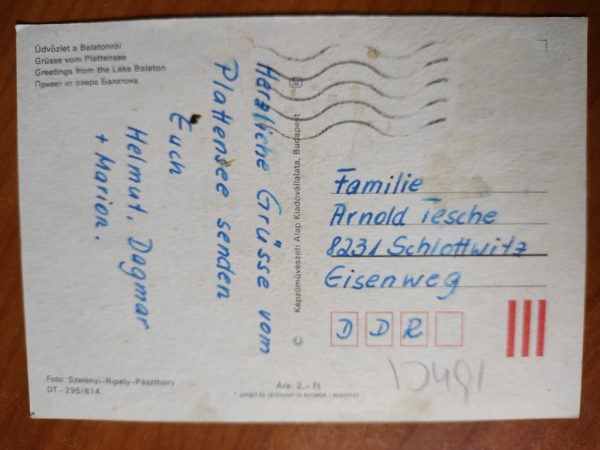 Üdvözlet a Balatonról
Grüsse vom Plattensee
Greetings from the Lake Balaton
Привет от озера Балатона
Herzliche Grüsse vom
Plattensee senden
Euch
Helmut, Dagmar
+ Marion.
Képzőművészeti Alap Kiadóvállalata, Budapest
Familie
Arnold Tesche
8231 Schlottwitz
Eisenweg
DDR
Foto: Szelényi–Ripely–Pászthory
DT.–295/814
Ára: 2,– Ft